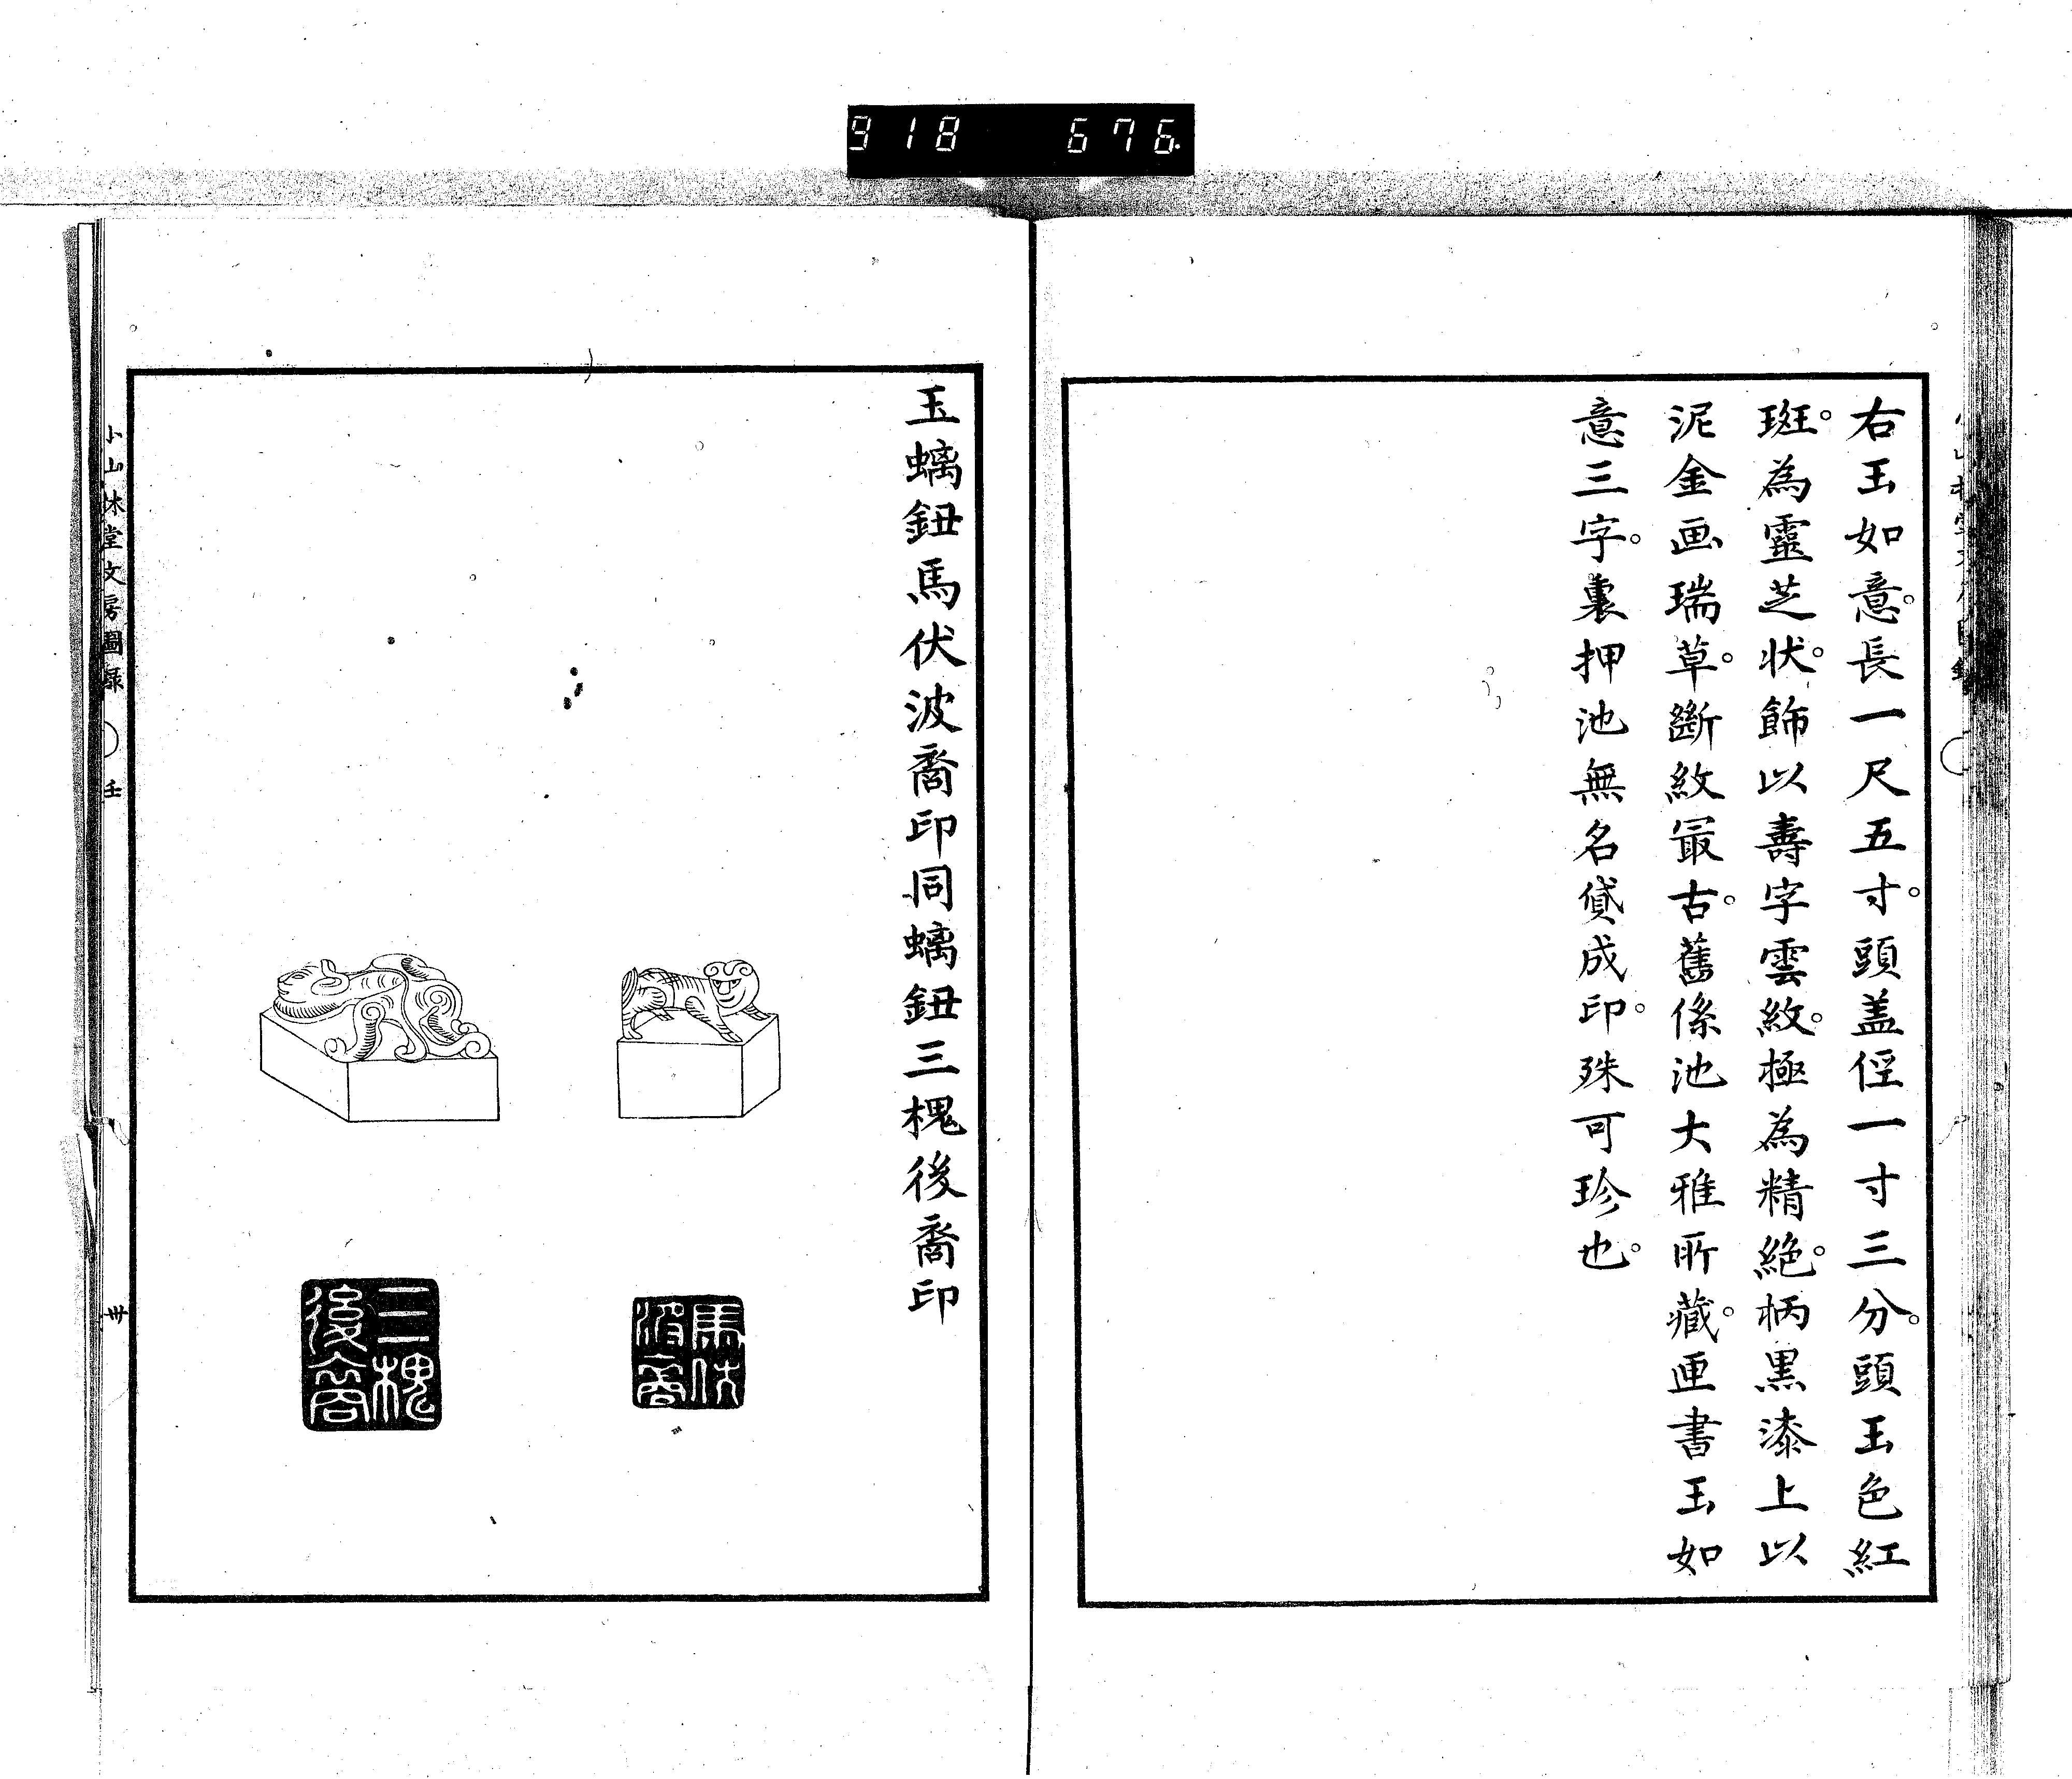 918 676.
右玉如意。長一尺五寸。頭盖徑一寸三分。頭玉色紅
斑。為靈芝状。飾以壽字雲紋。極為精絶。柄黒漆上以
泥金画瑞草。斷紋冣古。舊係池大雅所藏。匣書玉如
意三字。裏押池無名貸成印。殊可珍也。
玉螭鈕馬伏波裔印同螭鈕三槐後裔印
馬伏
波裔
三槐
後裔
小山林堂文房圖録
壬
卅